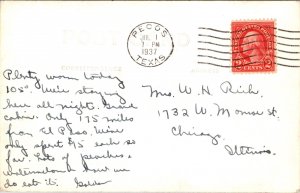 PECOS
JUL 1
7-PM
1937
TEXAS
2 CENTS 2
Plenty warm today
105°. We're staying
here all night. Grand
cabin. Only 175 miles
from El Paso. Have
only spent $15 each so
far. Lots of peaches &
watermelons & how we
do eat it.
Mrs. W. H. Rich,
1732 W. Monroe St.
Chicago,
Illinois.